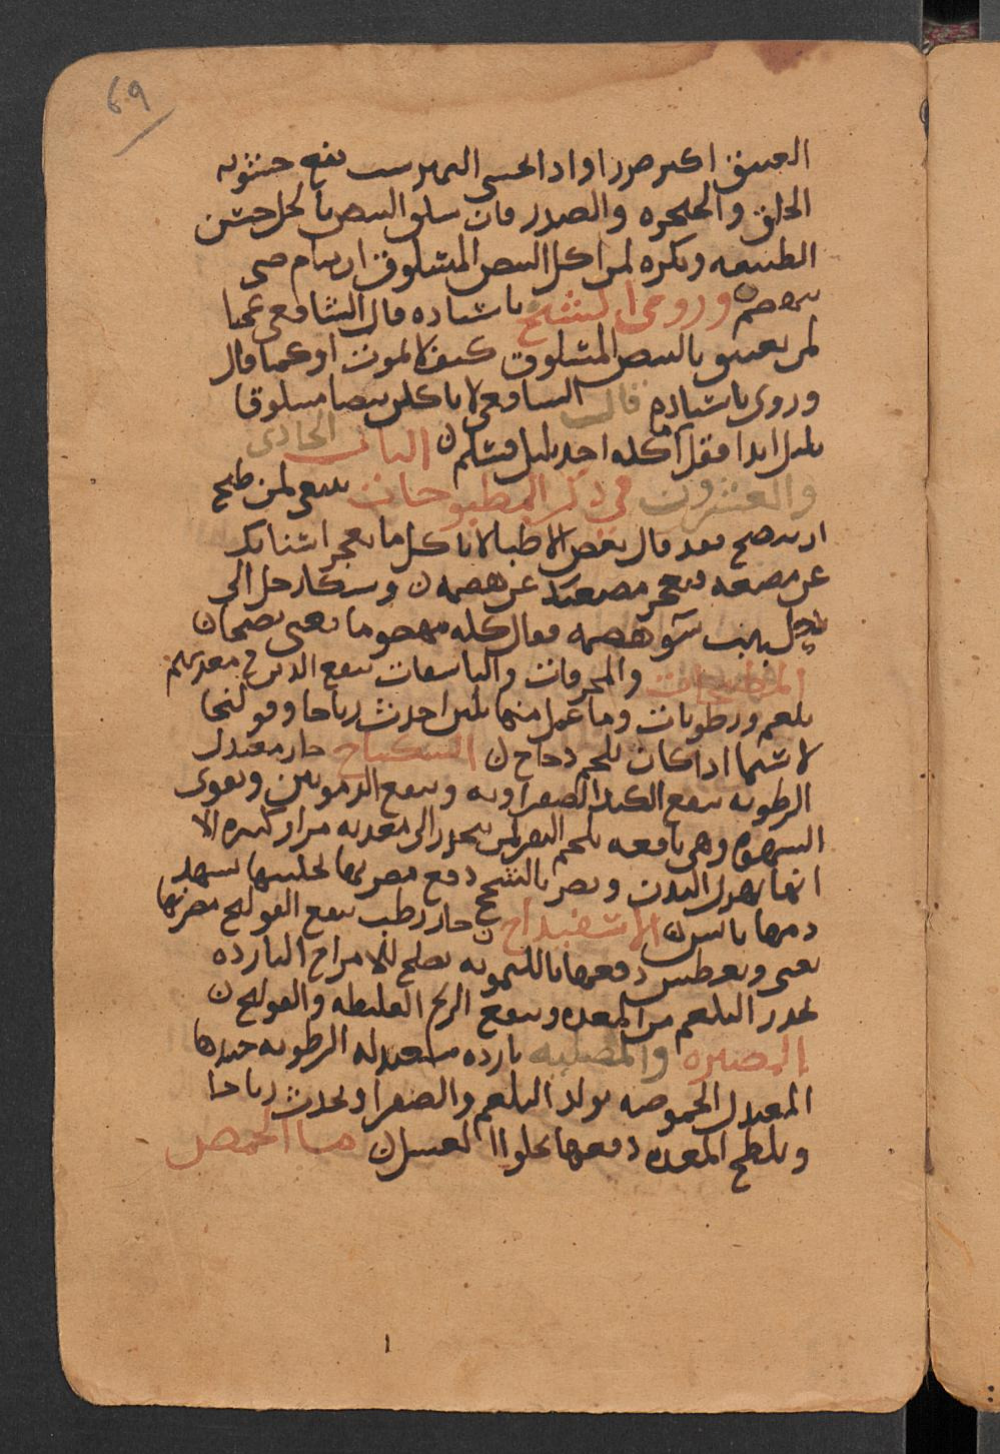 69
العتيق اكثر ضررا واذا تحسى النيمبرشت نفع خشونه
الحلق والحنجره والصدر فان سلق البيض بالخل خشن
الطبيعه ويكره لمن اكل البيض المسلوق ان ينام حتى
ينهضم وروى الشيخ باسناده قال الشافعى عجبا
لمن تعشى بالبيض المسلوق كيف لا يموت او كما قال
وروى باسناده قال الشافعى لا ياكلن بيضا مسلوقا
بليل ابدا فقل اكله احد بليل فسلم ن الباب الحادى
والعشرون فى ذكر المطبوخات ينبغى لمن طبخ
ان ينضج فقد قال بعض الاطبا لا تاكل ما تعجز اسنانك
عن مضغه فتعجز معدتك عن هضمه ن وشكا رجل الى
رجل سو هضمه فقال كله مهضوما يعنى نضجا ن
والمحرقات واليابسات تنفع الذين فى معدتهم
بلغم ورطوبات وما عمل منها بلبن احدث رياحا وقولنجا
لا سيما اذا كان بلحم دجاج ن السكباج حار معتدل
الرطوبه ينفع الكبد الصفراويه وينفع الدمويين ويقوى
الشهوه وهى نافعه بلحم البقر لمن ينحدر الى معدته مرار كثيره الا
انها تهزل البدن وتضر بالشيخ دفع مضرتها
دسمها باسرن الاسفيداج ن حار رطب ينفع القولنج مضرتها
تغثى وتعطش دفعها بالليمونه تصلح للامزاج البارده
تحدر البلغم من المعده وينفع الريح الغليظه والقولنج ن
المضيره والمصليه بارده معتدله الرطوبه جيدها
المعتدل الحموضه تولد البلغم والصفرا وتحدث رياحا
وتلطخ المعده دفعها بحلوا العسل ن ما الحمص